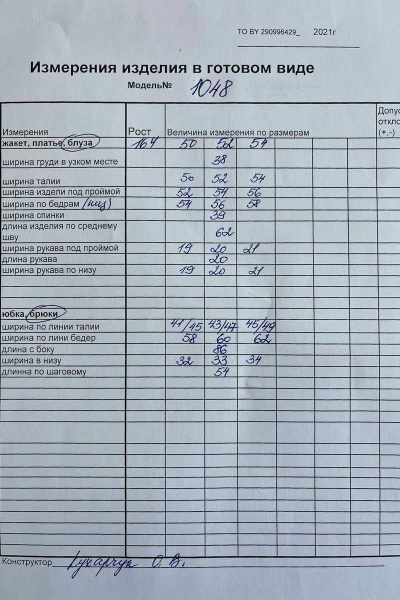 ТО BY 290996429_ 2021г
Измерения изделия в готовом виде
Модель№ 1048
Измерения Рост Величина измерения по размерам Допус
откло
(+,-)
жакет, платье, блуза 164 50 52 54
ширина груди в узком месте 38
ширина талии 50 52 54
ширина издели под проймой 52 54 56
ширина по бедрам (низ) 54 56 58
ширина спинки 39
длина изделия по среднему
шву 62
ширина рукава под проймой 19 20 21
длина рукава 20
ширина рукава по низу 19 20 21
юбка, брюки
ширина по линии талии 41/45 43/47 45/49
ширина по лини бедер 58 60 62
длина с боку 86
ширина в низу 32 33 34
длинна по шаговому 54
Конструктор О. В.